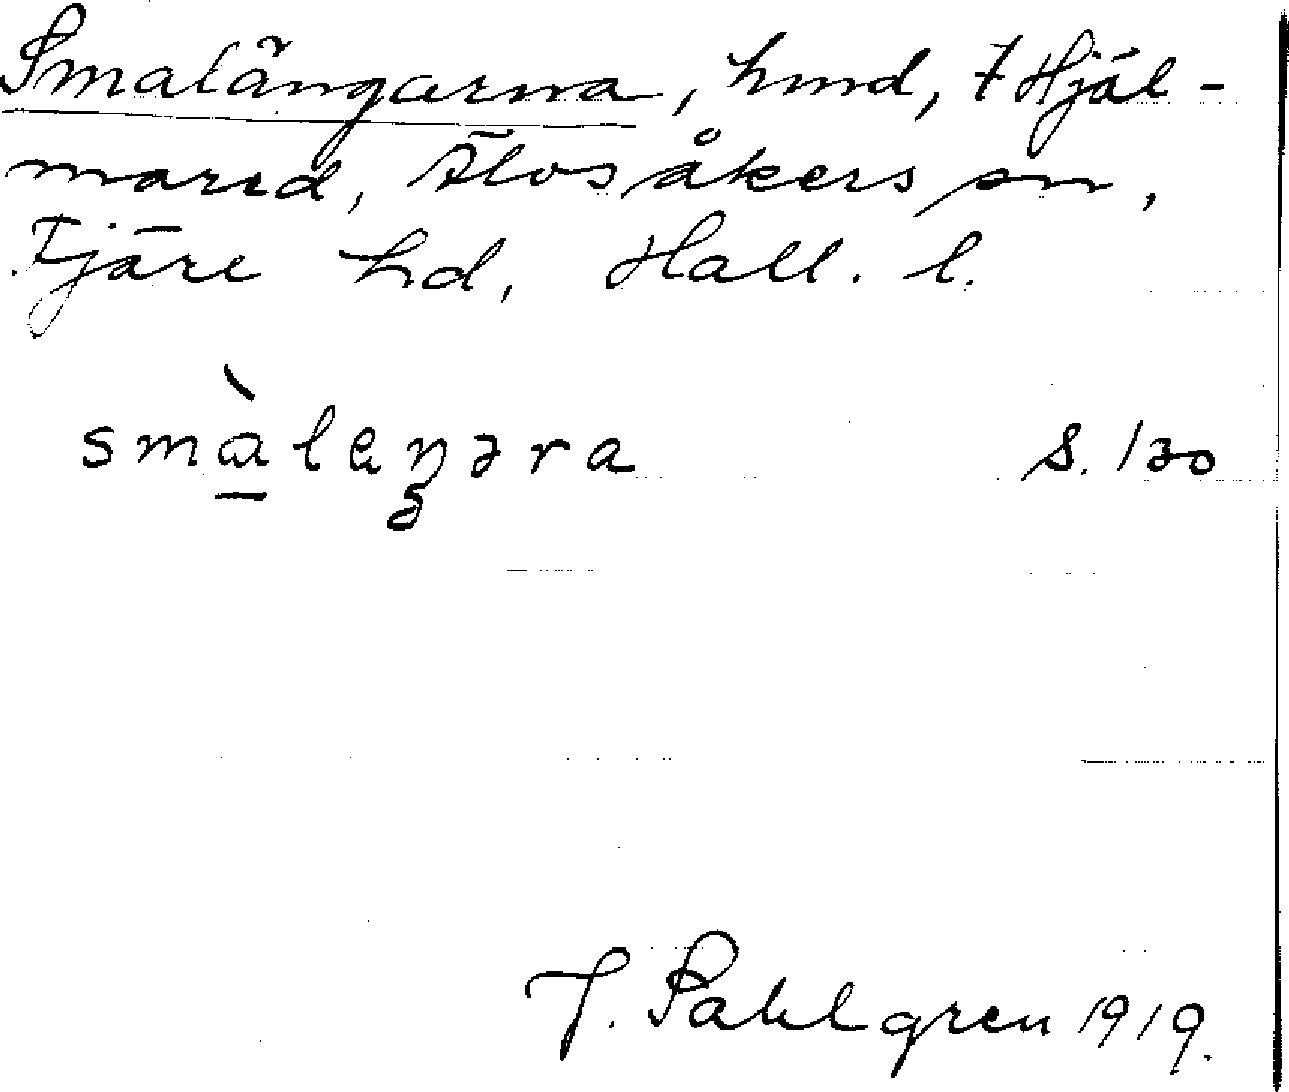 Smalängarna, hmd, t Hjäl-
mared, Älvsåkers sn,
Fjäre hd, Hall. l.
smàlenəra S. 130
J. Sahlgren 1919.